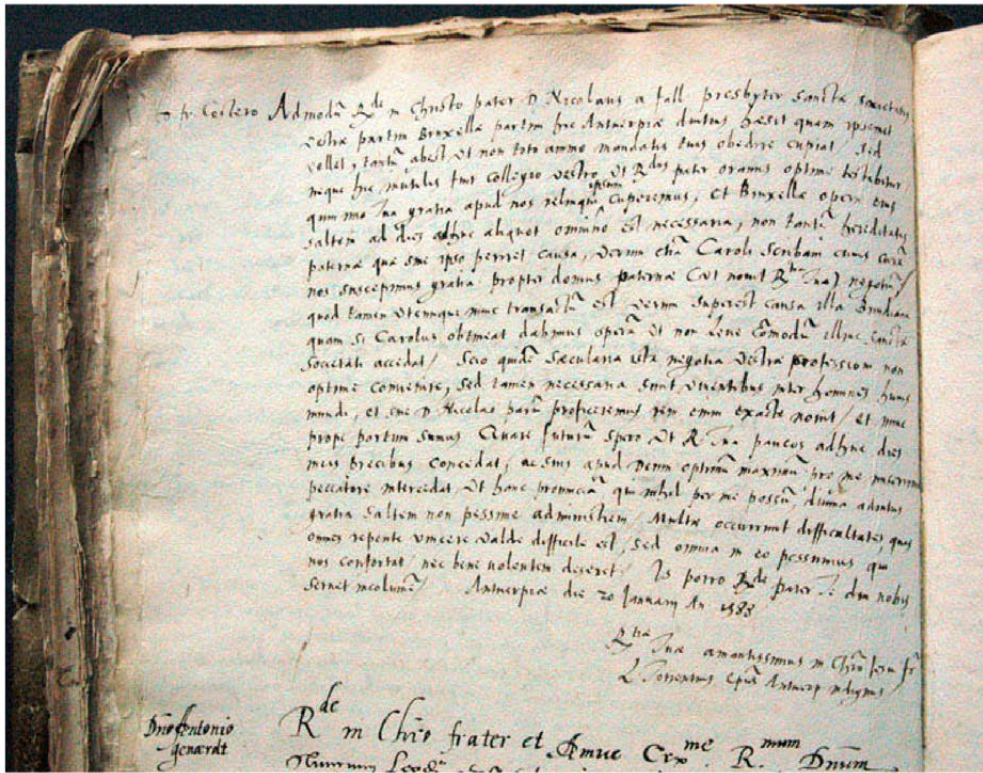 fr. Costero Admodū Rde in Christo pater D Nicolaus a fall. presbyter Sanctæ societatis
vestræ partim Bruxellæ partim hic Antverpiæ diutius hæsit quam ipsemet
vellet, tantū abest, Ut non toto animo mandatis tuis obedire cupiat, sed
neque hic inutilis fuit collegio vestro, Ut Rdus pater optime testabitur
quin imo Tua gratia apud nos relinqui ipsum cuperemus, Et Bruxellæ opera eius
saltem ad dies adhuc aliquot omnino est necessaria, non tantū hereditatis
paternæ quæ sine ipso periret causa, verum etiā Caroli Scribani cuius curā
nos suscepimus gratia propter domus paternæ (Ut novit Rtia Tua) negotiū
quod tamen Utcunque nunc transactū est verum superest causa illa
quam si Carolus obtineat dabimus operā Ut non leve cōmodū illinc sanctæ
societati accedat / Scio quidē sæcularia ista negotia vestræ professioni non
optime convenire, sed tamen necessaria sunt viventibus inter homines huius
mundi, et sine D Nicolao parū proficeremus rem enim exacte novit / et nunc
prope portum sumus Quare futurū spero Ut R. Tua paucos adhuc dies
meis precibus concedat, ac simul apud Deum optimū maximū pro me misero
peccatore intercedat, Ut hanc provinciā qui nihil per me possū, divina adiutus
gratia saltem non pessime administrem / Multæ occurrunt difficultates, quas
omnes repente vincere valde difficile est, sed omnia in eo possumus qui
nos confortat / nec bene volentem deseret / Is porro Rde Pater Te diu nobis
servet incolumē / Antverpiæ die 20 Januarii An 1588
Rtiæ Tuæ amantissimus in Chrō Iesu fr
L Torrentius Epūs Antverp indignus
Dno Antonio
Rde in Chrō frater et Amice Cxme. R.mum Dnum